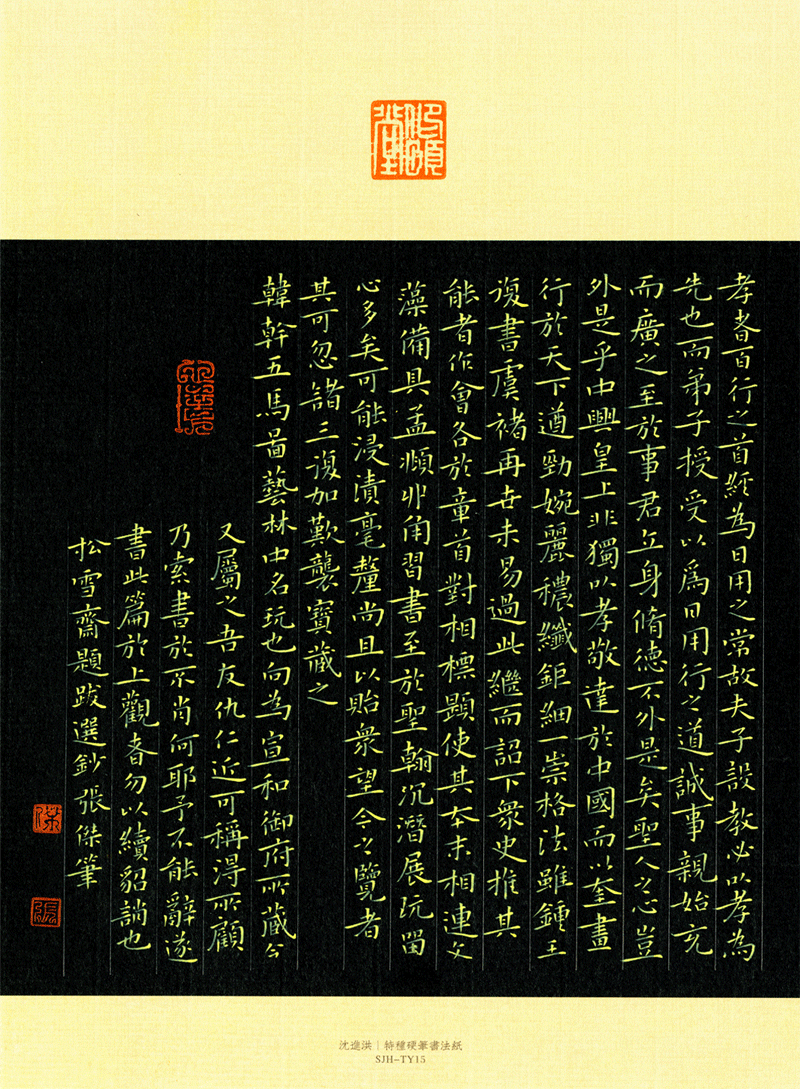 孝者百行之首經為日用之常故夫子設教必以孝為
先也而弟子授受以爲日用行之道誠事親始充
而廣之至於事君立身脩德不外是矣聖人之心豈
外是乎中興皇上非獨以孝敬達於中國而以奎畫
行於天下遒勁婉麗穠纖鉅細一崇格法雖鍾王
復書虞褚再世未易過此繼而詔下衆史推其
能者作會各於章首對相標題使其本末相連文
藻備具孟頫丱角習書至於聖翰沉潛展玩留
心多矣可能浸漬毫釐尚且以貽衆望今之覽者
其可忽諸三復加歎襲寶藏之
韓幹五馬啚藝林中名玩也向為宣和御府所藏今
又屬之吾友仇仁近可稱得所顧
乃索書於不肖何耶予不能辭遂
書此篇於上觀者勿以續貂誚也
松雪齋題跋選鈔張傑筆
傑
張
沈進洪｜特種硬筆書法紙
SJH-TY15